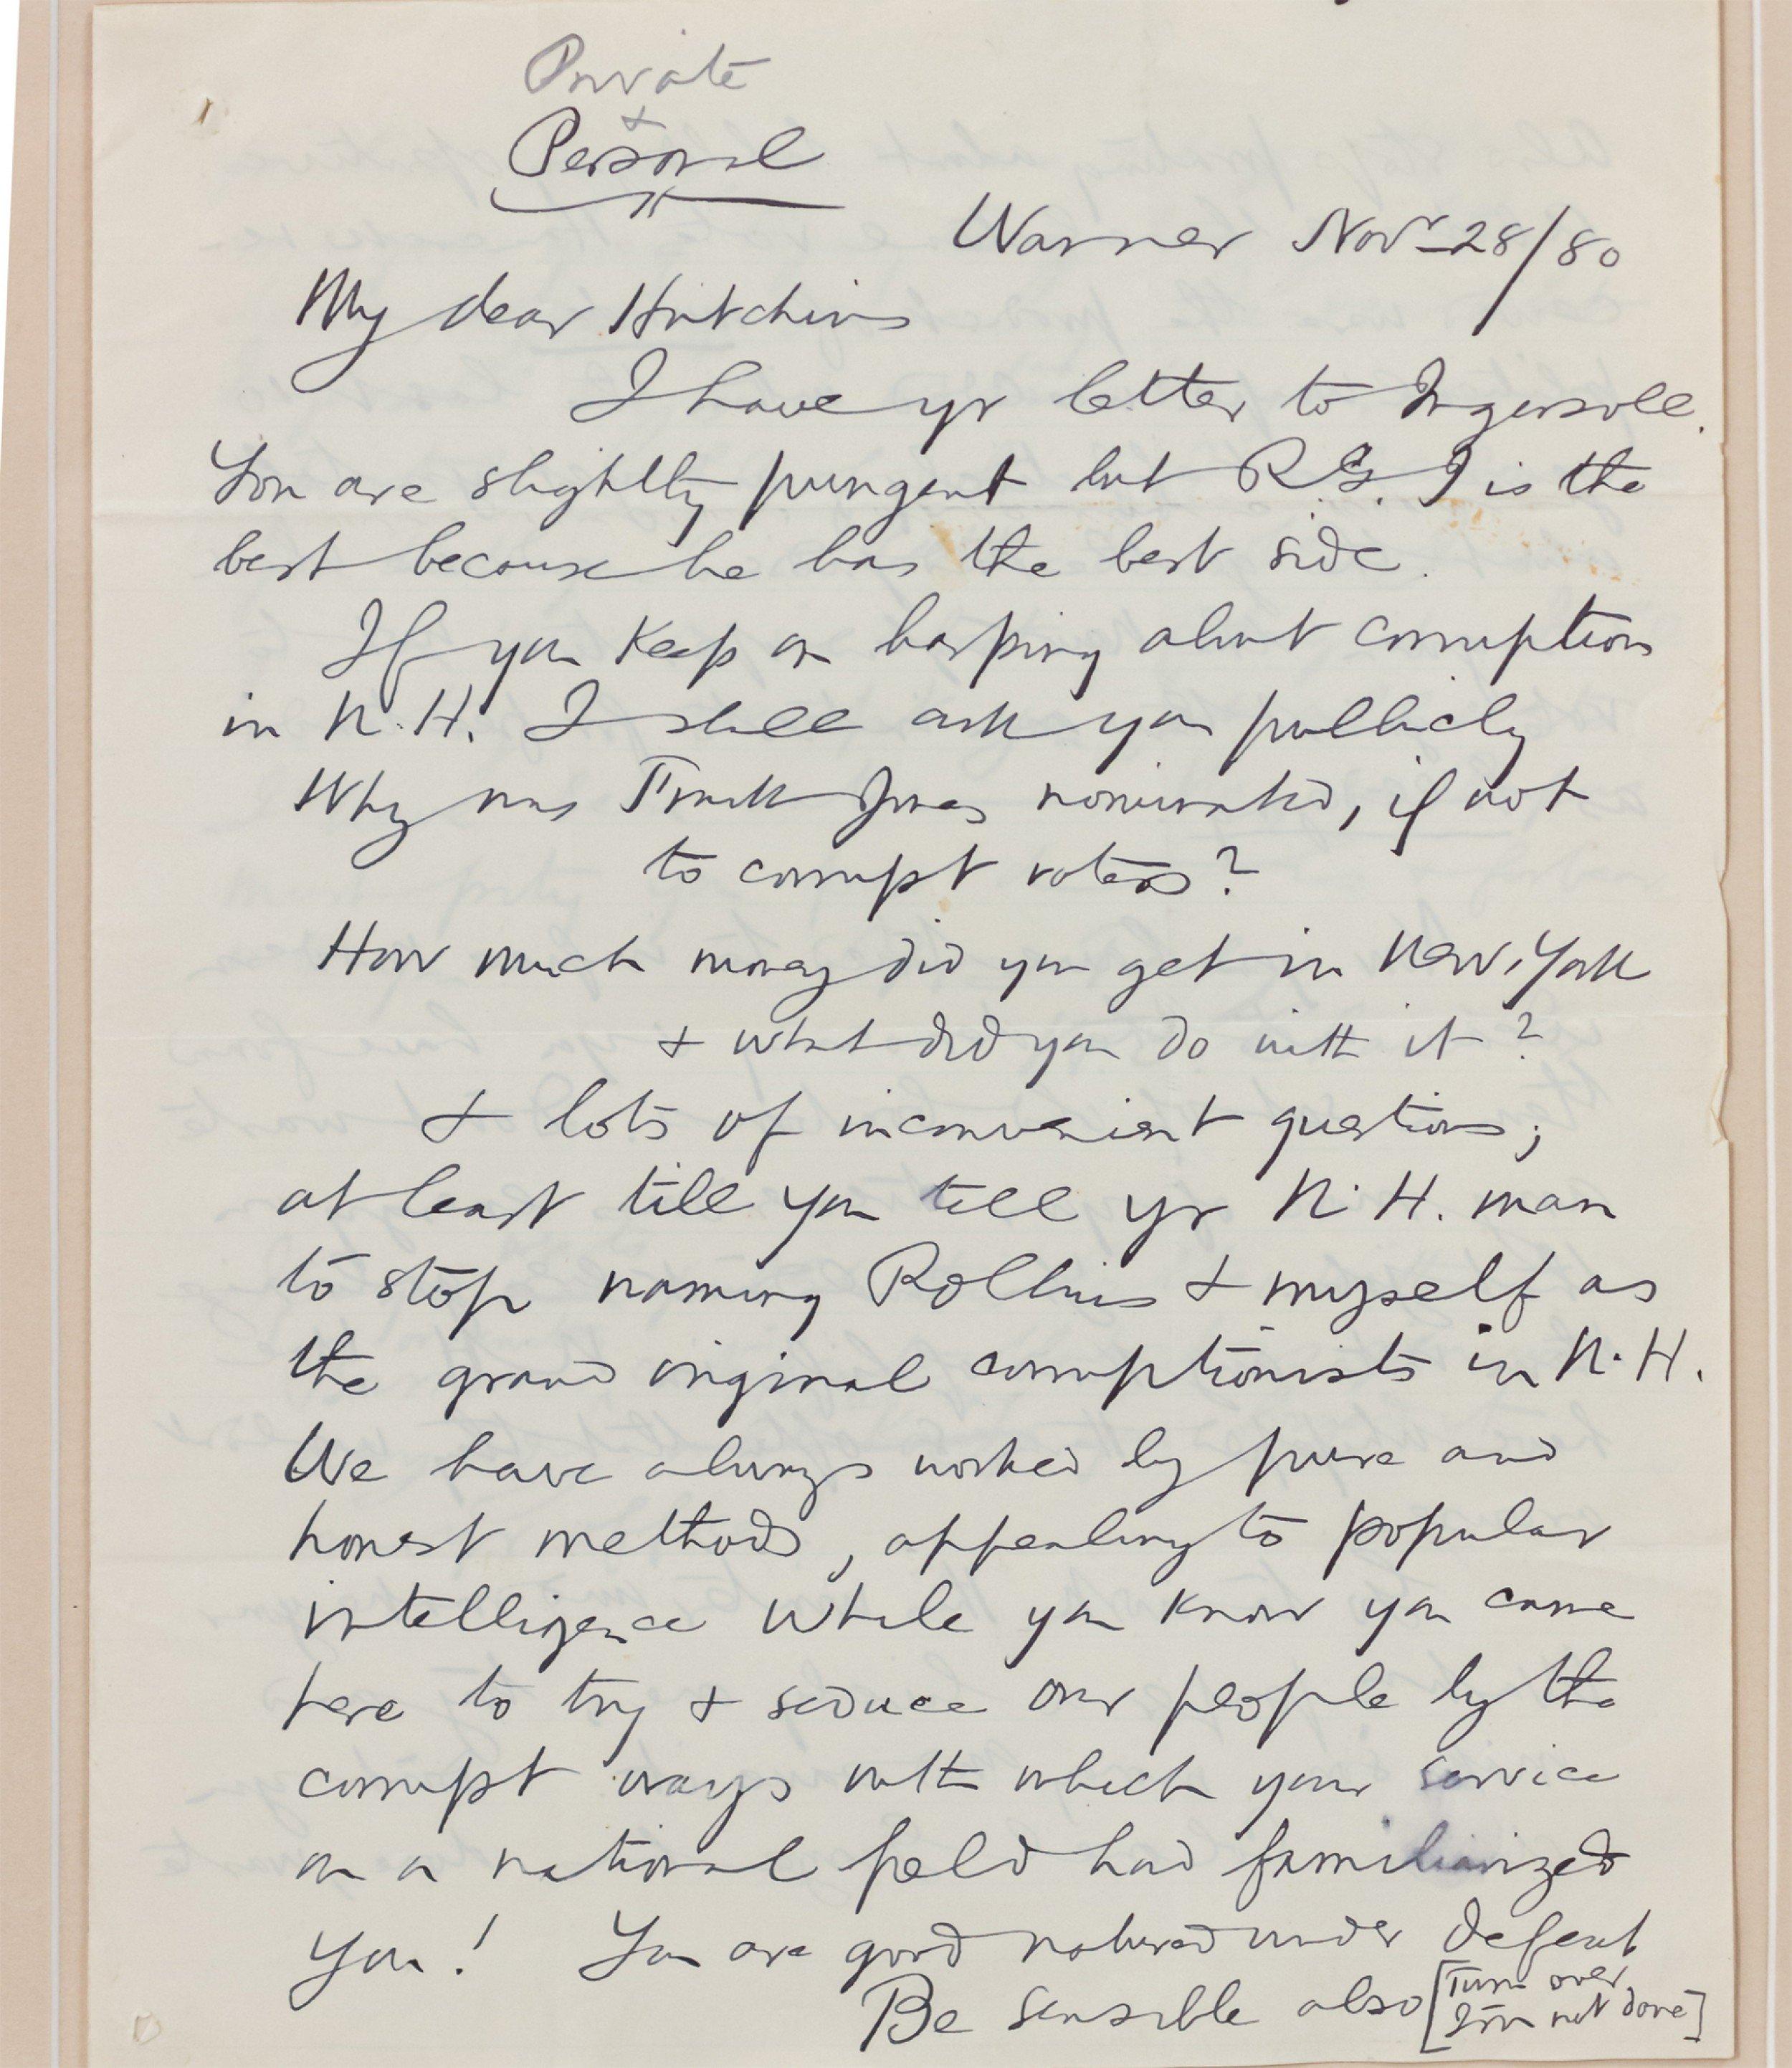 Private
+
Personal
Warner Novr 28/80
My dear Hutchins
I have yr letter to Ingersoll.
You are slightly pungent but R. G. I is the
best because he has the best side.
If you keep on harping about corruption
in N. H. I shall ask you publicly
Why was Frank Jones nominated, if not
to corrupt voters?
How much money did you get in New York
+ what did you do with it?
+ lots of inconvenient questions;
at least till you tell yr N. H. man
to stop naming Rollins + myself as
the grand original corruptionists in N. H.
We have always worked by pure and
honest methods, appealing to popular
intelligence while you know you came
here to try + seduce our people by the
corrupt ways with which your service
on a national field had familiarized
you! You are good natured under defeat
Be sensible also [Turn over
I'm not done]